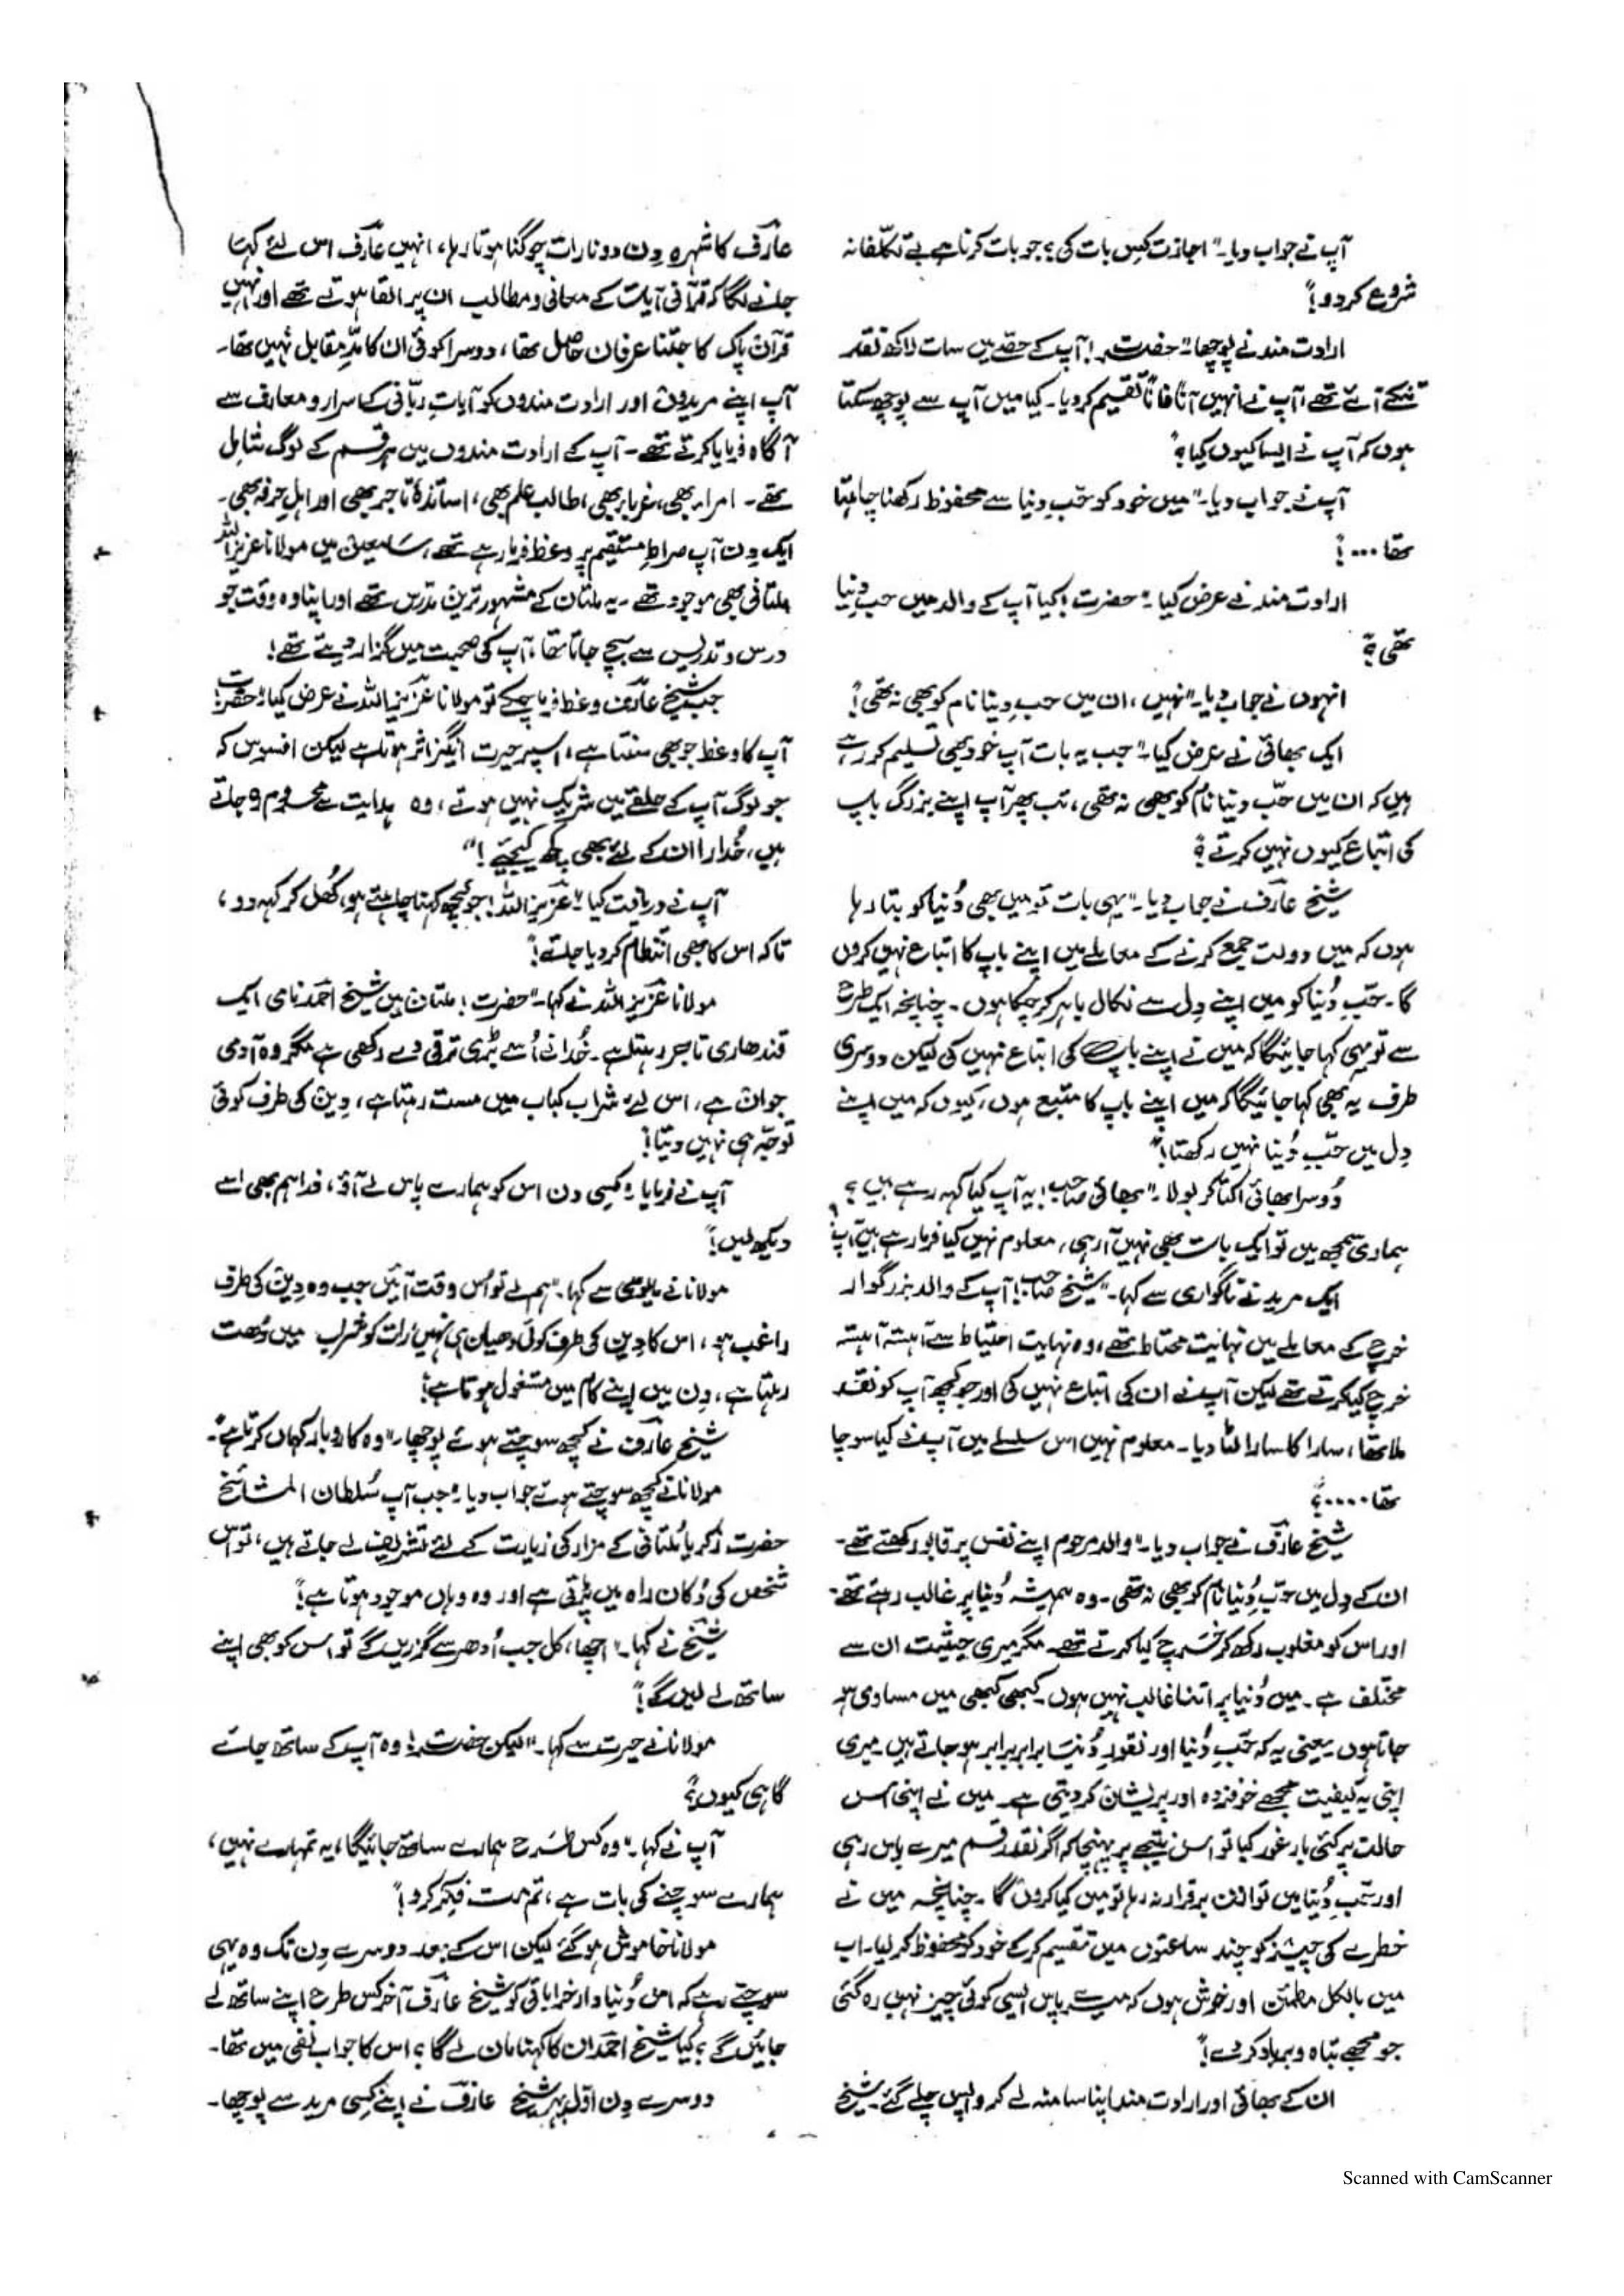 آپ نے جواب دیا۔" اجازت کیسی بات کی؟ جو بات کرنا ہے بے تکلفانہ
شروع کردو!"
ارادت مند نے پوچھا۔" حضرت! آپ کے حصے میں سات لاکھ نقد
تنکے آئے تھے، آپ نے انہیں آناً فاناً تقسیم کردیا۔ کیا میں آپ سے پوچھ سکتا
ہوں کہ آپ نے ایسا کیوں کیا؟"
آپ نے جواب دیا۔" میں خود کو حُبِ دنیا سے محفوظ رکھنا چاہتا
تھا....!"
ارادت مند نے عرض کیا۔" حضرت! کیا آپ کے والد میں حب دنیا
تھی؟"
انہوں نے جواب دیا۔" نہیں، ان میں حب دنیا نام کو بھی نہ تھی!"
ایک بھائی نے عرض کیا۔" جب یہ بات آپ خود بھی تسلیم کر رہے
ہیں کہ ان میں حُبِ دنیا نام کو بھی نہ تھی، تب پھر آپ اپنے بزرگ باپ
کی اتباع کیوں نہیں کرتے؟"
شیخ عارف نے جواب دیا۔" یہی بات تو میں بھی دُنیا کو بتا رہا
ہوں کہ میں دولت جمع کرنے کے معاملے میں اپنے باپ کا اتباع نہیں کروں
گا۔ حُبِ دُنیا کو میں اپنے دِل سے نکال باہر کر چکا ہوں۔ چنانچہ ایک طرح
سے تو یہی کہا جائیگا کہ میں نے اپنے باپ کی اتباع نہیں کی لیکن دوسری
طرف یہ بھی کہا جائیگا کہ میں اپنے باپ کا متبع ہوں، کیوں کہ میں اپنے
دِل میں حُبِ دُنیا نہیں رکھتا!"
دُوسرا بھائی اکتا کر بولا۔" بھائی صاحب! یہ آپ کیا کہہ رہے ہیں؟
ہماری سمجھ میں تو ایک بات بھی نہیں آ رہی، معلوم نہیں کیا فرما رہے ہیں آپ؟"
ایک مرید نے ناگواری سے کہا۔" شیخ صاحب! آپ کے والد بزرگوار
خرچ کے معاملے میں نہایت محتاط تھے، وہ نہایت احتیاط سے آہستہ آہستہ
خرچ کیا کرتے تھے لیکن آپ نے ان کی اتباع نہیں کی اور جو کچھ آپ کو نقد
ملا تھا، سارا کا سارا لٹا دیا۔ معلوم نہیں اس سلسلے میں آپ نے کیا سوچا
تھا....؟"
شیخ عارف نے جواب دیا۔" والد مرحوم اپنے نفس پر قابو رکھتے تھے۔
ان کے دِل میں حُبِ دُنیا نام کو بھی نہ تھی۔ وہ ہمیشہ دُنیا پر غالب رہے تھے
اور اس کو مغلوب رکھ کر خرچ کیا کرتے تھے۔ مگر میری حیثیت ان سے
مختلف ہے۔ میں دُنیا پر اتنا غالب نہیں ہوں۔ کبھی کبھی میں مساوی ہو
جاتا ہوں۔ یعنی یہ کہ حُبِ دُنیا اور نفورِ دُنیا برابر برابر ہو جاتے ہیں۔ میری
اپنی یہ کیفیت مجھے خوفزدہ اور پریشان کر دیتی ہے۔ میں نے اپنی اس
حالت پر کئی بار غور کیا تو اس نتیجے پر پہنچا کہ اگر نقد رقم میرے پاس رہی
اور حُبِ دُنیا میں توازن برقرار نہ رہا تو میں کیا کروں گا۔ چنانچہ میں نے
خطرے کی چیز کو چند ساعتوں میں تقسیم کر کے خود کو محفوظ کر لیا۔ اب
میں بالکل مطمئن اور خوش ہوں کہ میرے پاس ایسی کوئی چیز نہیں رہ گئی
جو مجھے تباہ و برباد کر دے!"
ان کے بھائی اور ارادت مند اپنا سا منہ لے کر واپس چلے گئے۔ شیخ
عارف کا شہرہ دِن دونا رات چوگنا ہوتا رہا، انہیں عارف اس لئے کہا
جانے لگا کہ قرآنی آیات کے معانی و مطالب ان پر القا ہوتے تھے اور انہیں
قرآن پاک کا جتنا عرفان حاصل تھا، دوسرا کوئی ان کا مدِّمقابل نہیں تھا۔
آپ اپنے مریدوں اور ارادت مندوں کو آیاتِ ربّانی کے اسرار و معارف سے
آگاہ فرمایا کرتے تھے۔ آپ کے ارادت مندوں میں ہر قسم کے لوگ شامل
تھے۔ امراء بھی، غرباء بھی، طالب علم بھی، اساتذہ تاجر بھی اور اہلِ حرفہ بھی۔
ایک دِن آپ صراطِ مستقیم پر وعظ فرما رہے تھے، سامعین میں مولانا عزیز اللہ
ملتانی بھی موجود تھے۔ یہ ملتان کے مشہور ترین مدرس تھے اور اپنا وہ وقت جو
درس و تدریس سے بچ جاتا تھا، آپ کی صحبت میں گزار دیتے تھے!
جب شیخ عارف وعظ فرما چکے تو مولانا عزیز اللہ نے عرض کیا۔" حضرت!
آپ کا وعظ جو بھی سنتا ہے، اس پر حیرت انگیز اثر ہوتا ہے لیکن افسوس کہ
جو لوگ آپ کے حلقے میں شریک نہیں ہوتے، وہ ہدایت سے محروم رہ جاتے
ہیں، خُدارا ان کے لئے بھی کچھ کیجئے!"
آپ نے دریافت کیا۔" عزیز اللہ! جو کچھ کہنا چاہتے ہو، کُھل کر کہہ دو،
تاکہ اس کا بھی انتظام کر دیا جائے!"
مولانا عزیز اللہ نے کہا۔" حضرت! ملتان میں شیخ احمد نامی ایک
قندھاری تاجر رہتا ہے۔ خُدا نے اُسے بڑی ترقی دے رکھی ہے مگر وہ آدمی
جوان ہے، اس لئے شراب کباب میں مست رہتا ہے، دِین کی طرف کوئی
توجّہ ہی نہیں دیتا!"
آپ نے فرمایا۔" کسی دن اس کو ہمارے پاس لے آؤ، ذرا ہم بھی اسے
دیکھ لیں!"
مولانا نے مایوسی سے کہا۔" ہم لے تو اُس وقت آئیں جب وہ دِین کی طرف
راغب ہو، اس کا دِین کی طرف کوئی دھیان ہی نہیں، رات کو شراب میں دُھت
رہتا ہے، دِن میں اپنے کام میں مشغول ہوتا ہے!"
شیخ عارف نے کچھ سوچتے ہوئے پوچھا۔" وہ کاروبار کہاں کرتا ہے؟"
مولانا نے کچھ سوچتے ہوئے جواب دیا۔" جب آپ سُلطان المشائخ
حضرت زکریا مُلتانی کے مزار کی زیارت کے لئے تشریف لے جاتے ہیں، تو اس
شخص کی دُکان راہ میں پڑتی ہے اور وہ وہاں موجود ہوتا ہے!"
شیخ نے کہا۔" اچھا، کل جب اُدھر سے گزریں گے تو اس کو بھی اپنے
ساتھ لے لیں گے!"
مولانا نے حیرت سے کہا۔" لیکن حضرت! وہ آپ کے ساتھ جائے
گا ہی کیوں؟"
آپ نے کہا۔" وہ کس طرح ہمارے ساتھ جائیگا، یہ تمہارے نہیں،
ہمارے سوچنے کی بات ہے، تم مت فکر کرو!"
مولانا خاموش ہو گئے لیکن اس کے بعد دوسرے دِن تک وہ یہی
سوچتے رہے کہ اس دُنیا دار خراباتی کو شیخ عارف آخر کس طرح اپنے ساتھ لے
جائیں گے؟ کیا شیخ احمد ان کا کہنا مان لے گا؟ اس کا جواب نفی میں تھا۔
دوسرے دِن اوّل پہر شیخ عارف نے اپنے کسی مرید سے پوچھا۔
Scanned with CamScanner